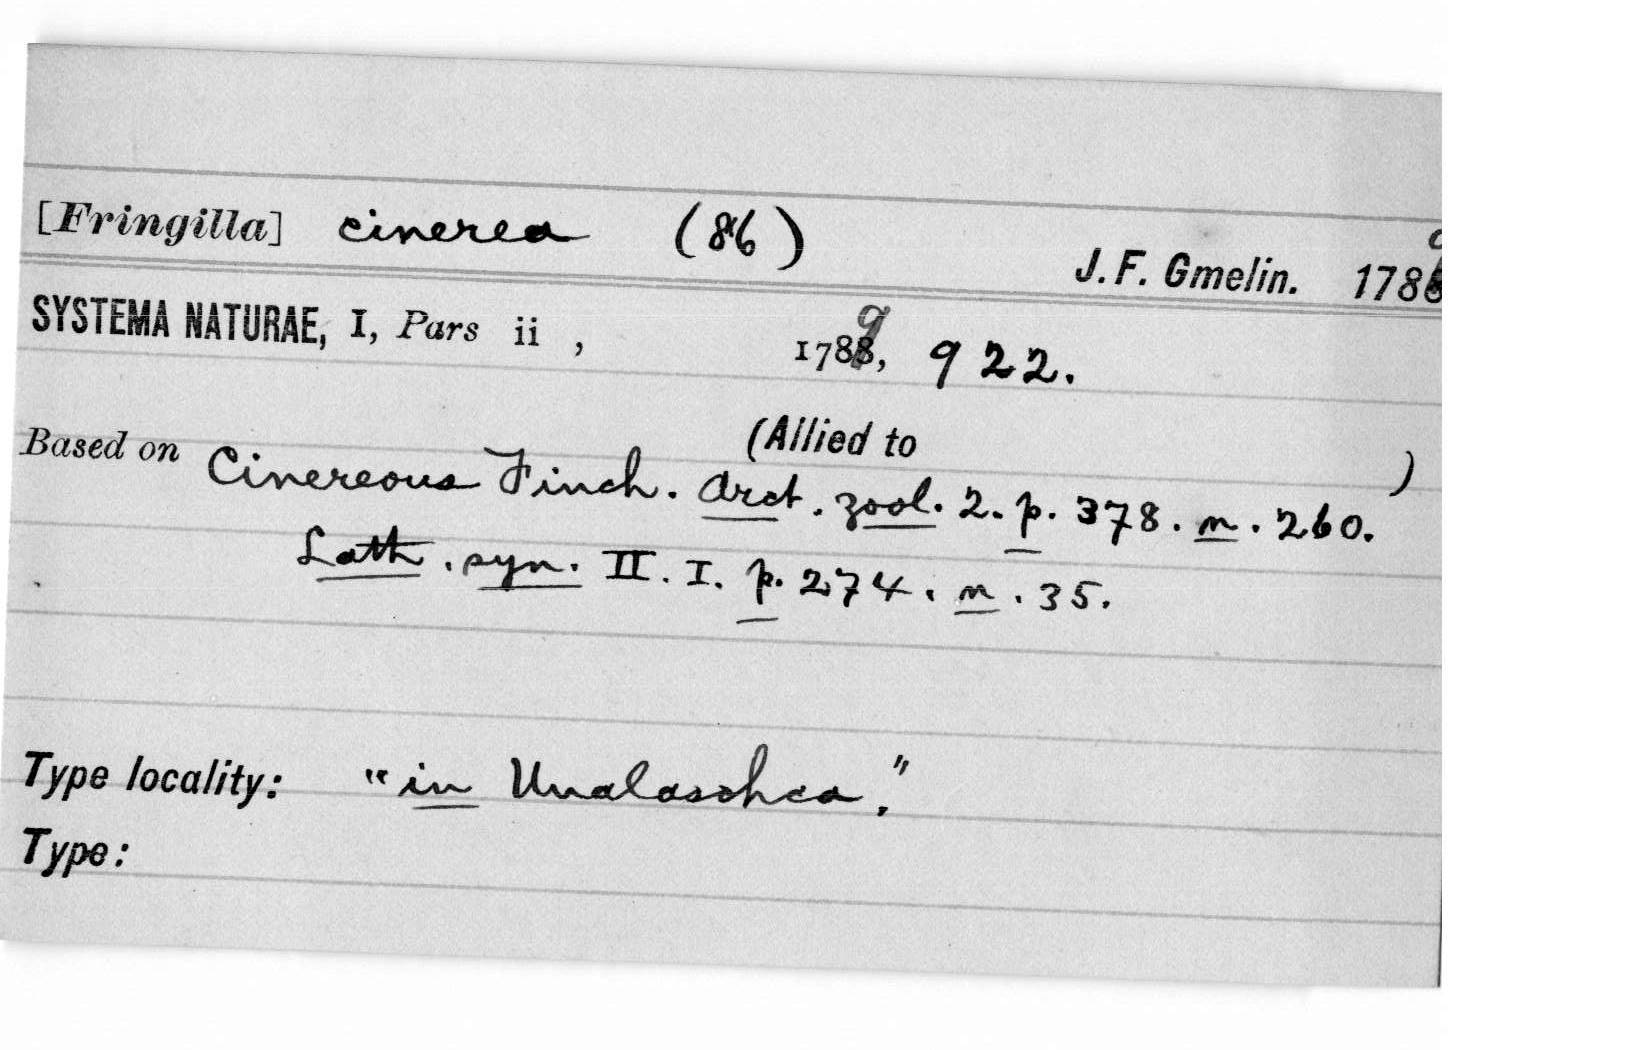 [Fringilla] cinerea (86)
J. F. Gmelin. 1789
SYSTEMA NATURAE, I, Pars ii , 1789, 922.
(Allied to )
Based on Cinereous Finch. Arct. zool. 2. p. 378. n. 260.
Lath. syn. II. I. p. 274. n. 35.
Type locality: "in Unalaschca."
Type: